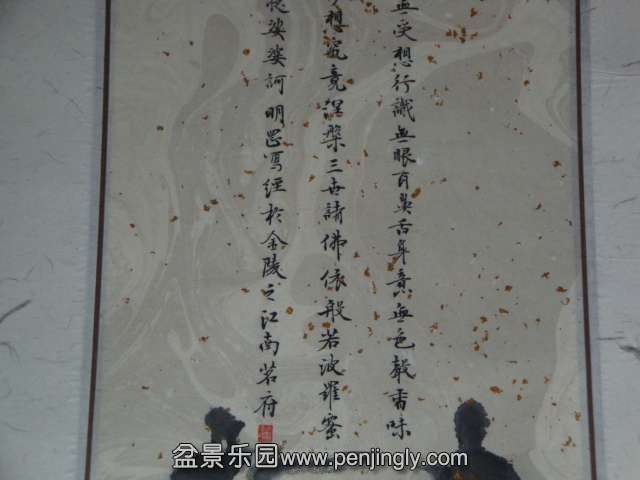 無受想行識無眼耳鼻舌身意無色聲香味
想究竟涅槃三世諸佛依般若波羅蜜
娑婆訶 明
寫經於金陵之江南茗府
盆景乐园www.penjingly.com